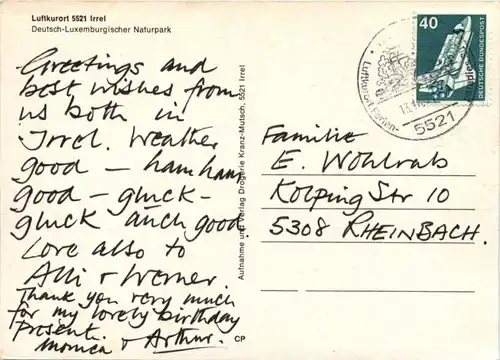 Luftkurort 5521 Irrel
Deutsch-Luxemburgischer Naturpark
Greetings and
best wishes from
us both in
Irrel. Weather
good – ham ham
good – gluck-
gluck auch good.
Love also to
Alli + Werner.
Thank you very much
for my lovely birthday
present.
Monica + Arthur.
Aufnahme und Verlag Drogerie Kranz-Mutsch, 5521 Irrel
CP
40
DEUTSCHE BUNDESPOST
Luftkurort Ferien-
5521
Familie
E. Wohlrab
Kolping Str 10
5308 RHEINBACH.